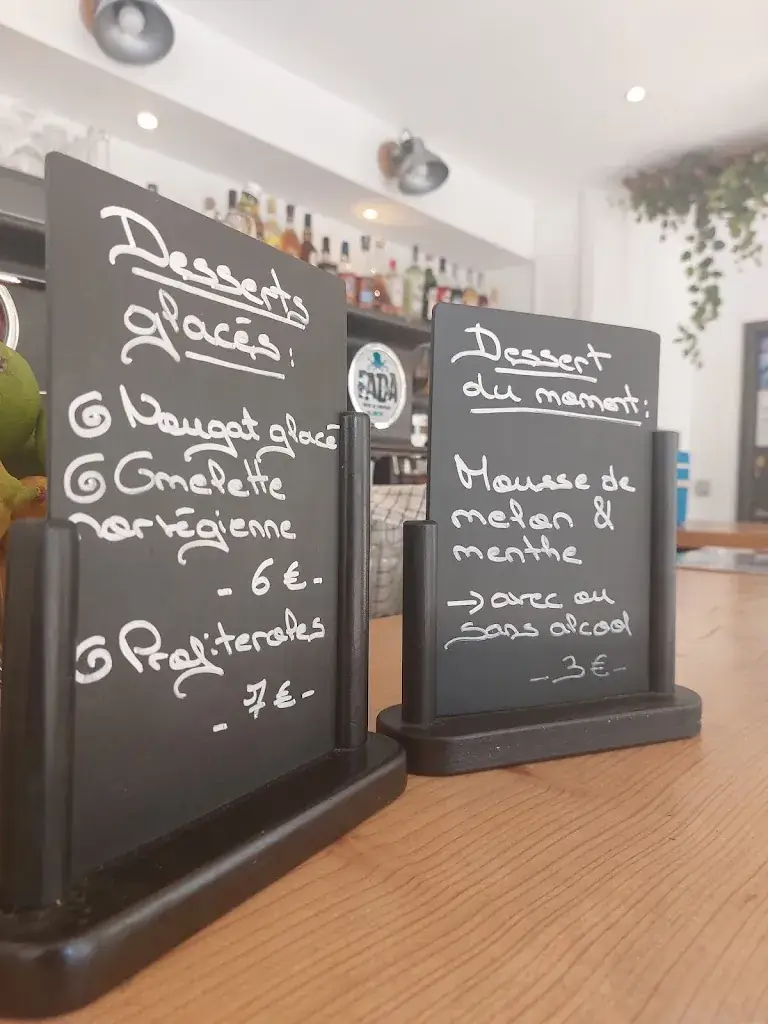 Desserts
glacés:
Nougat glacé
Omelette
norvégienne
- 6€ -
Profiteroles
- 7€ -
FADA
Dessert
du moment:
Mousse de
melon &
menthe
→ avec ou
sans alcool
- 3€ -